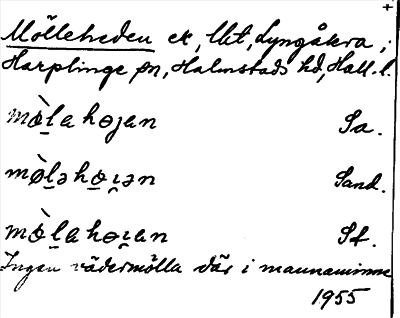 Mölleheden ek, lht, Lyngåkra,
Harplinge sn, Halmstads hd, Hall. l.
mø̀l̠a høɟan Sa.
mø̀l̠ə hø̠ı̨ən Sand.
mø̀l̠a høı̨an St.
Ingen vädermölla där i mannaminne
1955